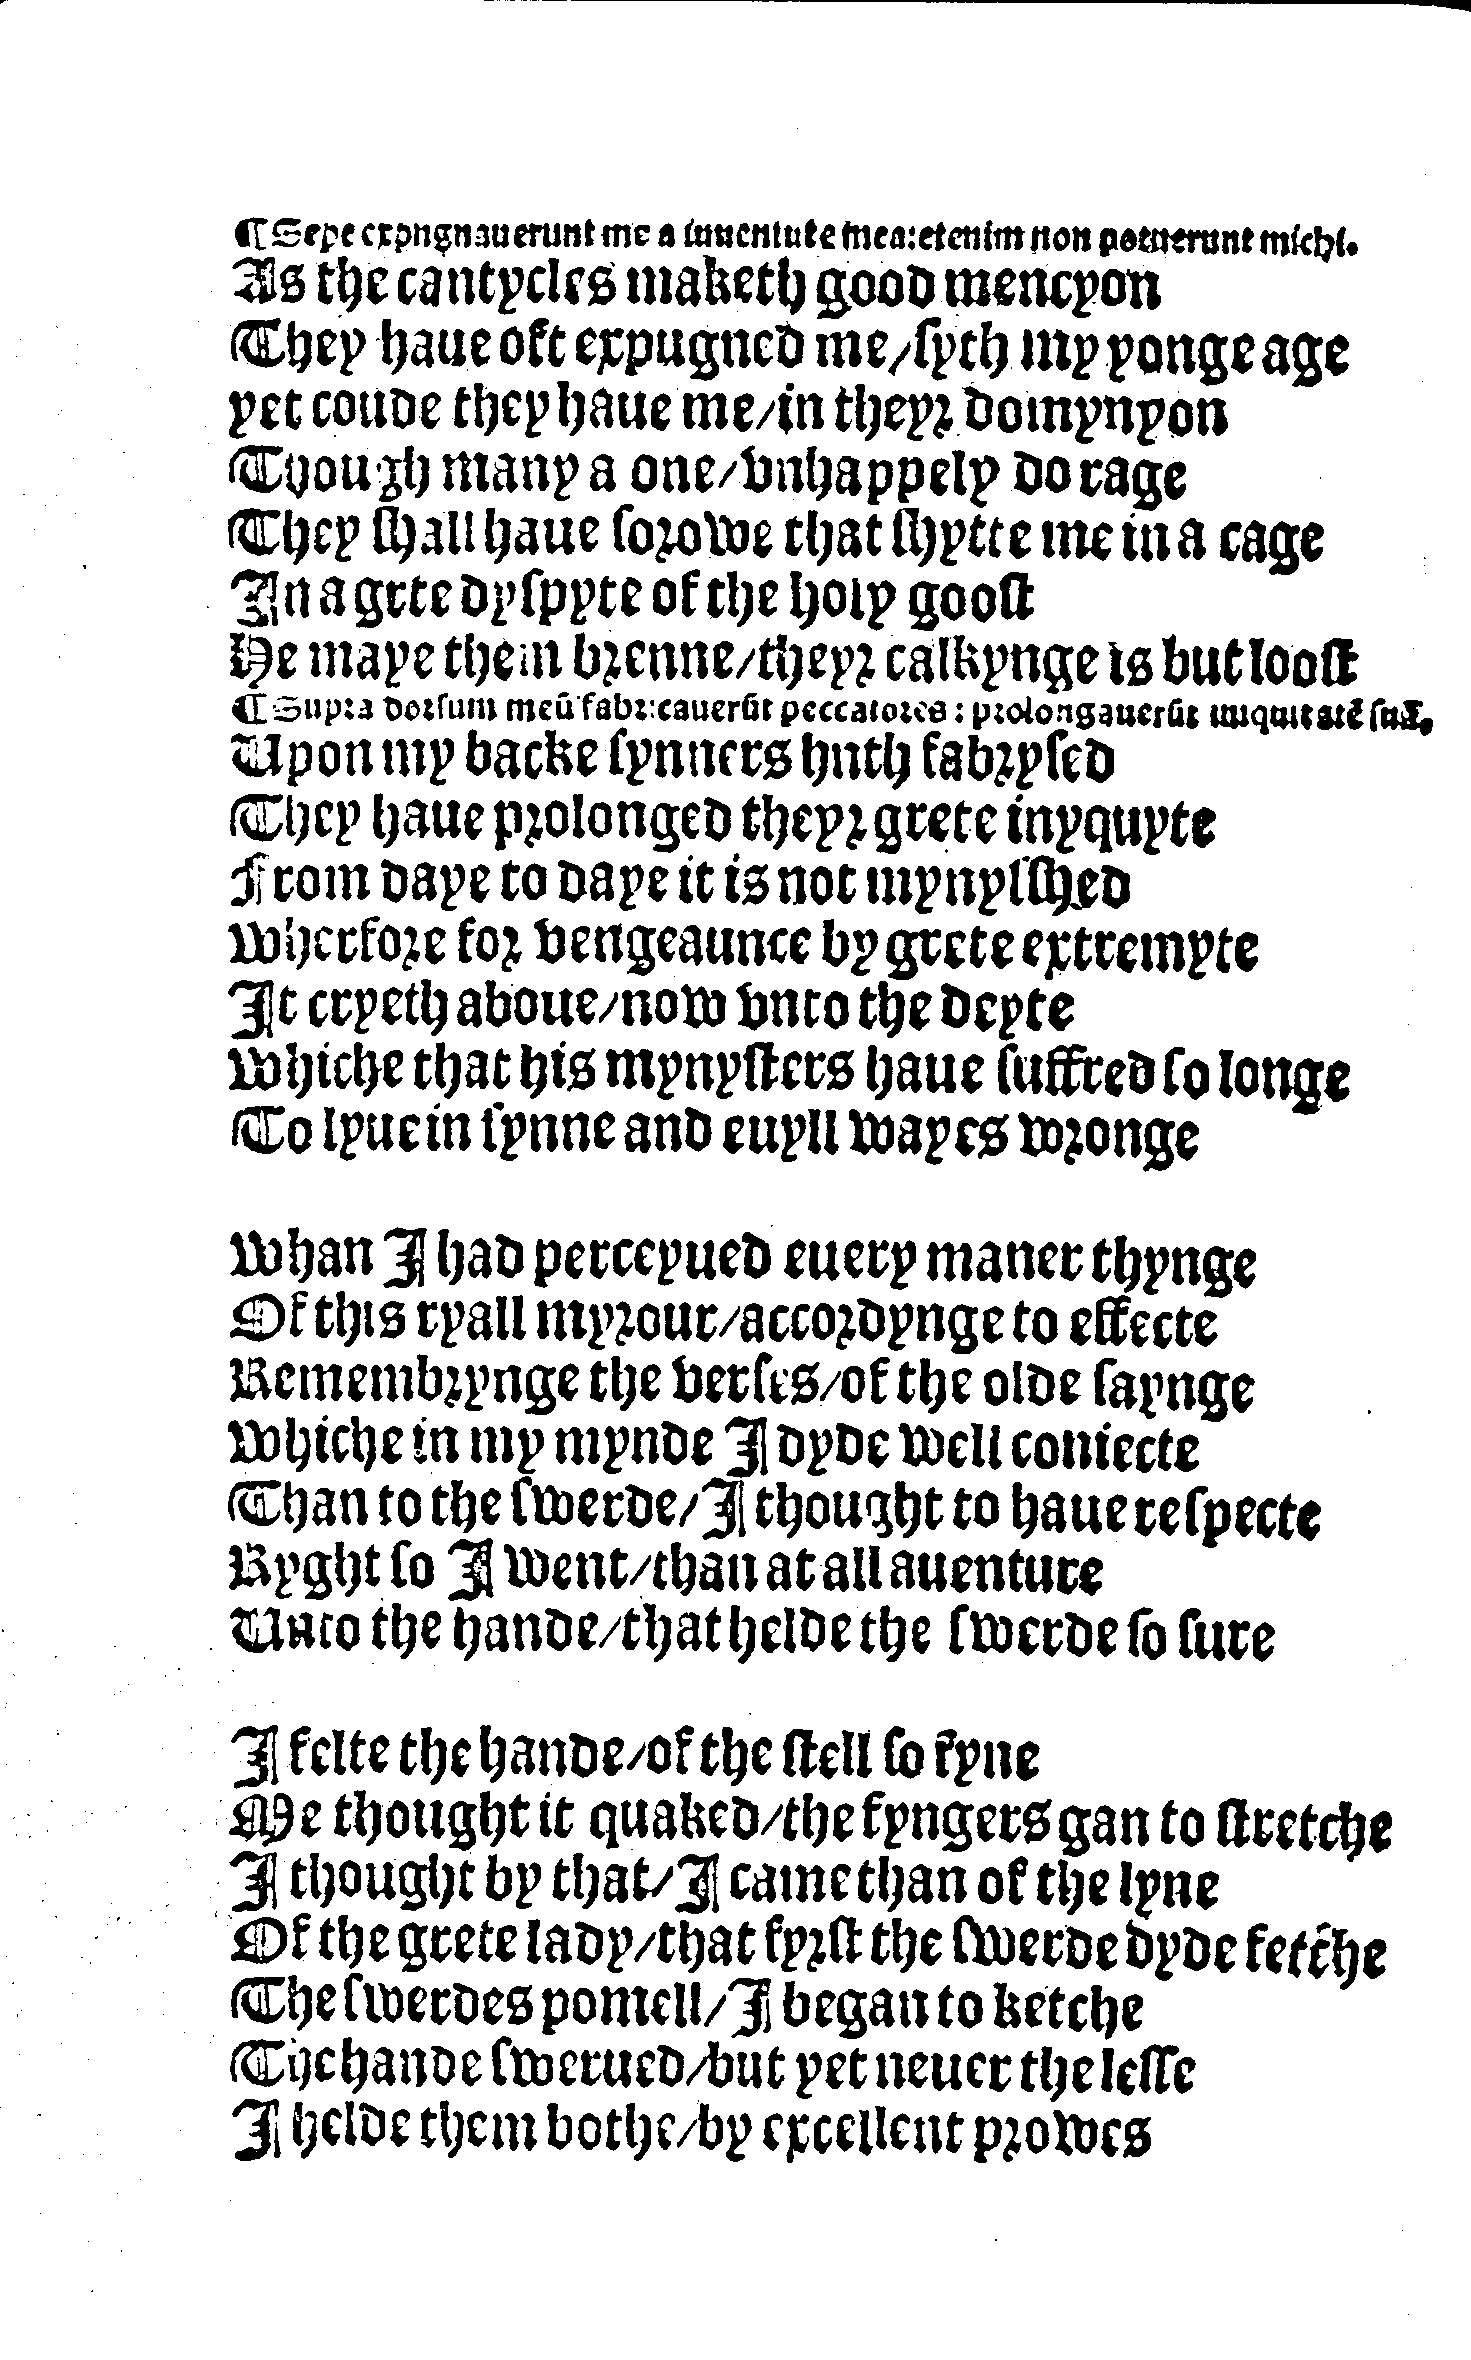 ¶ Sepe expugnauerunt me a iuuentute mea: etenim non potuerunt michi.
As the cantycles maketh good mencyon
They haue oft expugned me/ syth my yonge age
yet coude they haue me/ in theyr domynyon
Though many a one/ vnhappely do rage
They shall haue sorowe that shytte me in a cage
In a grete dyspyte of the holy goost
He maye them brenne/ theyr calkynge is but loost
¶ Supra dorsum meū fabricauerūt peccatores: prolongauerūt iniquitatē suā.
Upon my backe synners hath fabrysed
They haue prolonged theyr grete inyquyte
From daye to daye it is not mynysshed
Wherfore for vengeaunce by grete extremyte
It cryeth aboue/ now vnto the deyte
Whiche that his mynysters haue suffred so longe
To lyue in synne and euyll wayes wronge
Whan I had perceyued euery maner thynge
Of this ryall myrour/ accordynge to effecte
Remembrynge the verses/ of the olde saynge
Whiche in my mynde I dyde well coniecte
Than to the swerde/ I thought to haue respecte
Ryght so I went/ than at all auenture
Unto the hande/ that helde the swerde so sure
I felte the hande/ of the stell so fyne
Me thought it quaked/ the fyngers gan to stretche
I thought by that/ I came than of the lyne
Of the grete lady/ that fyrst the swerde dyde fetche
The swerdes pomell/ I began to ketche
The hande swerued/ but yet neuer the lesse
I helde them bothe/ by excellent prowes